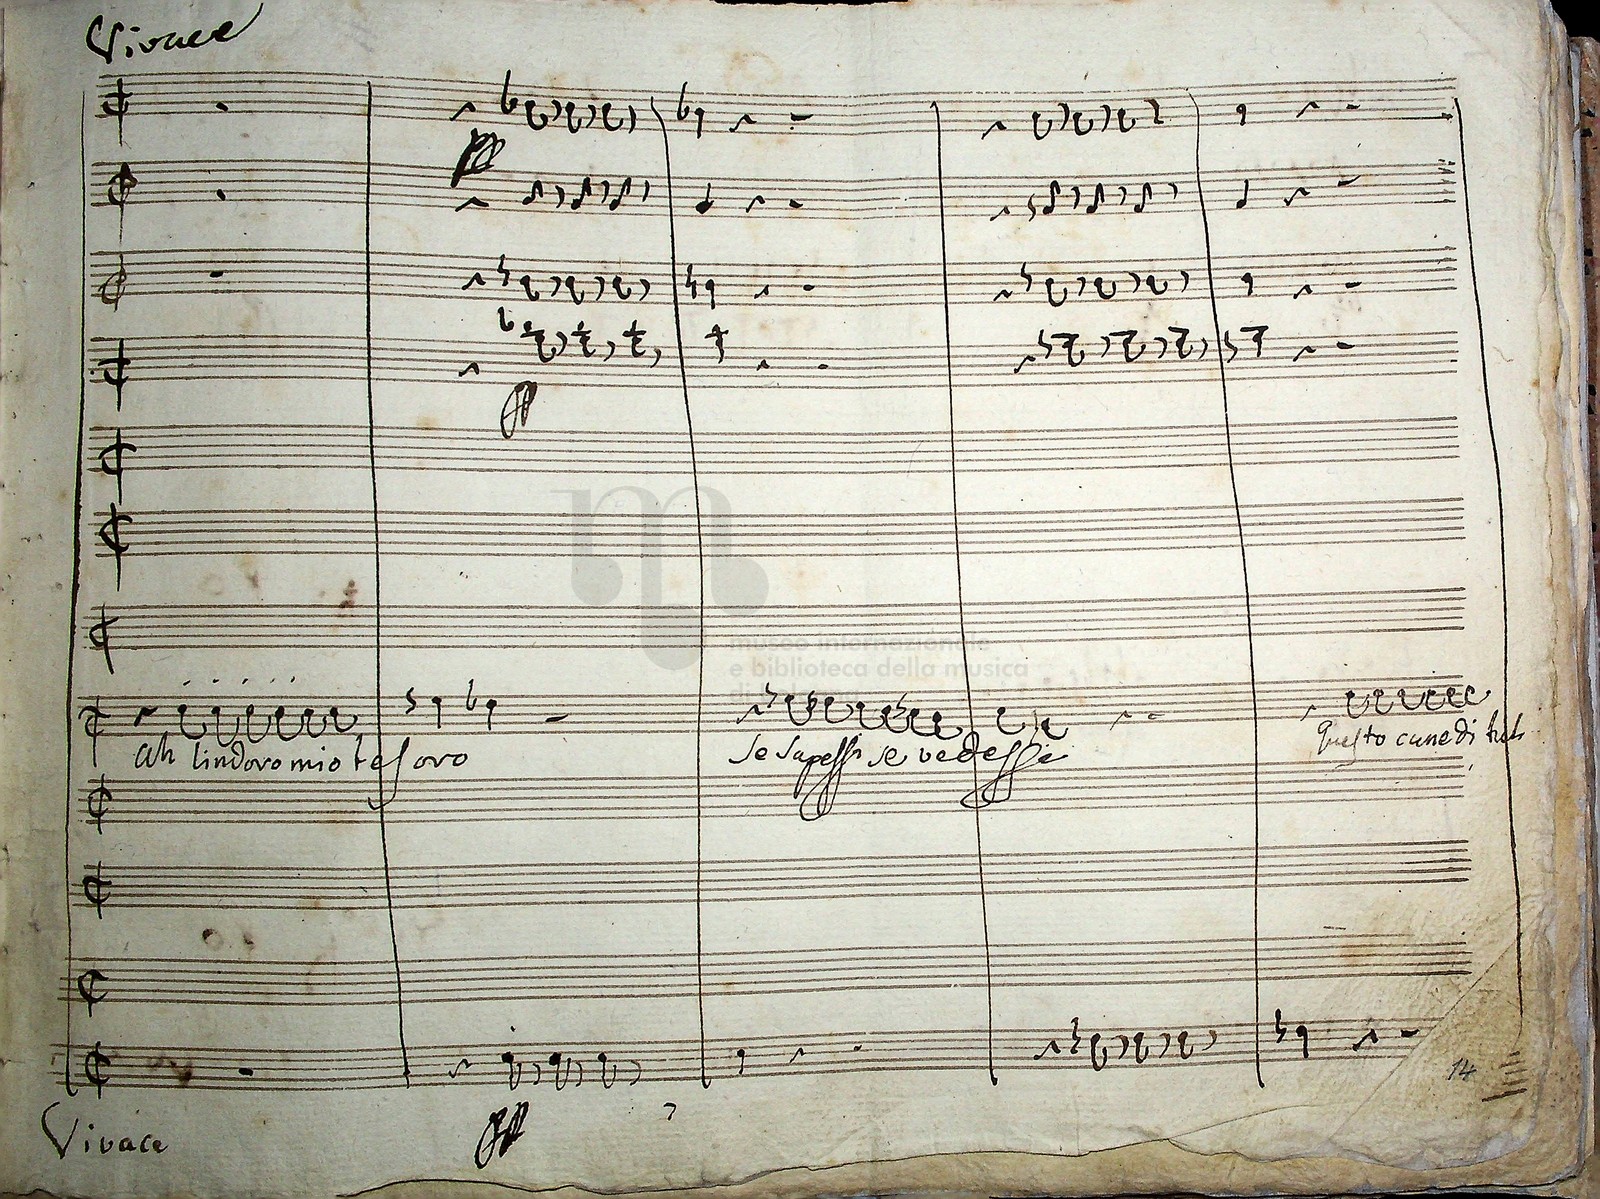 Vivace
pp
pp
museo internazionale
e biblioteca della musica
di Bologna
ah lindoro mio tesoro
se sapessi se vedessi
questo cane di tut
14
Vivace
pp